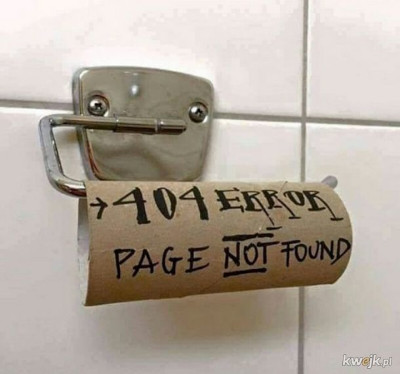 →404 ERROR
PAGE NOT FOUND
kwejk.pl